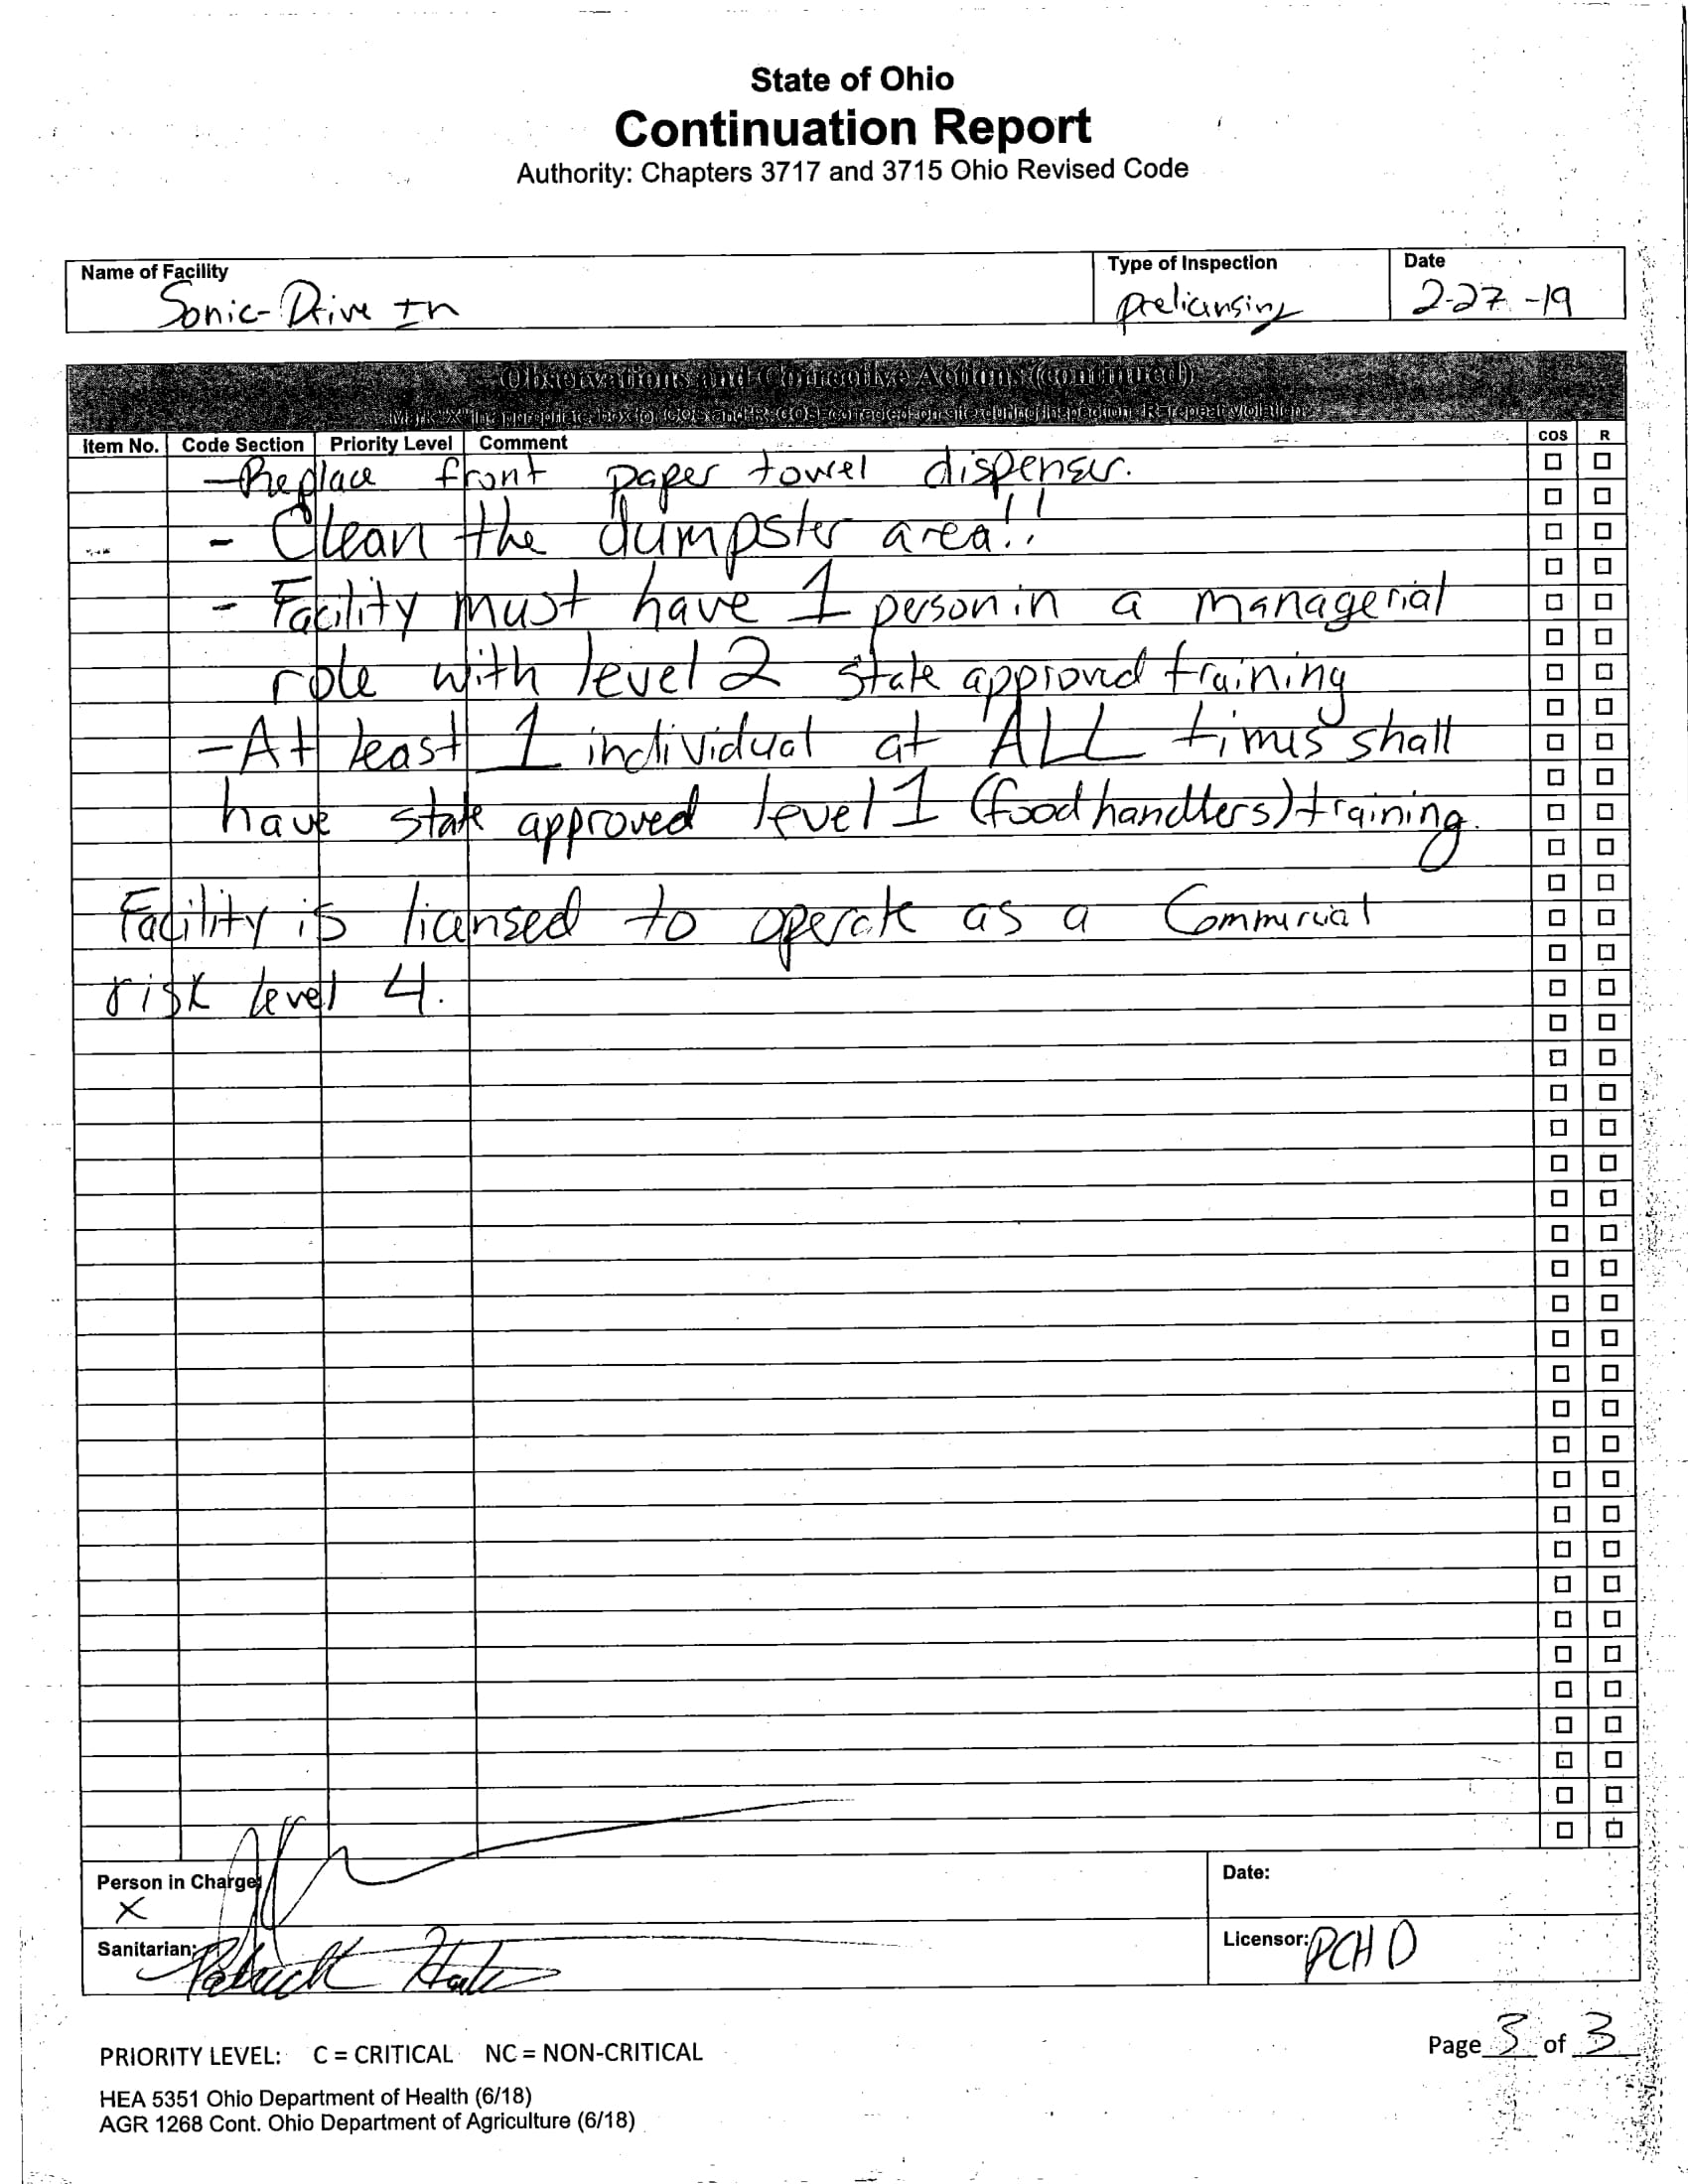 State of Ohio
Continuation Report
Authority: Chapters 3717 and 3715 Ohio Revised Code
Name of Facility
Sonic-Drive In
Type of Inspection
Prelicensing
Date
2-27-19
Observations and Corrective Actions (continued)
Mark "X" in appropriate box for COS and R: COS=corrected on-site during inspection R=repeat violation
Item No. Code Section Priority Level Comment COS R
- Replace front paper towel dispenser.
- Clean the dumpster area!!
- Facility must have 1 person in a managerial
role with level 2 state approved training
- At least 1 individual at ALL times shall
have state approved level 1 (food handlers) training.
Facility is licensed to operate as a Commercial
risk level 4.
Person in Charge
X
Date:
Sanitarian: Patrick
Licensor: PCHD
PRIORITY LEVEL: C = CRITICAL NC = NON-CRITICAL
Page 3 of 3
HEA 5351 Ohio Department of Health (6/18)
AGR 1268 Cont. Ohio Department of Agriculture (6/18)